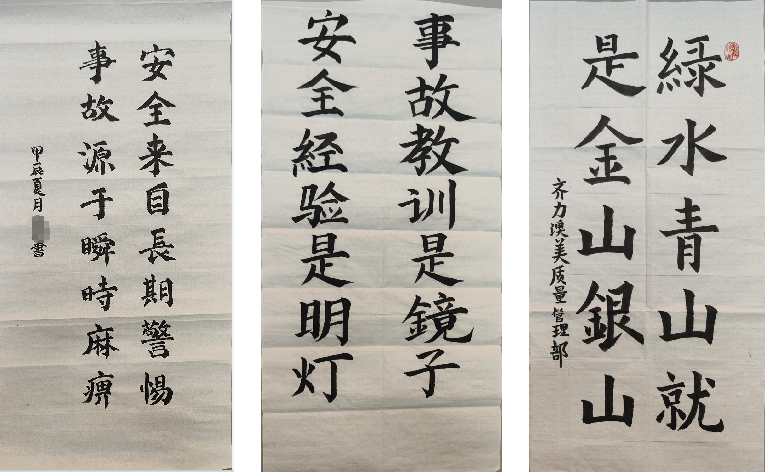 安全来自長期警惕
事故源于瞬時麻痹
甲辰夏月
書
事故教训是鏡子
安全经验是明灯
緑水青山就
是金山銀山
齐力澳美质量管理部